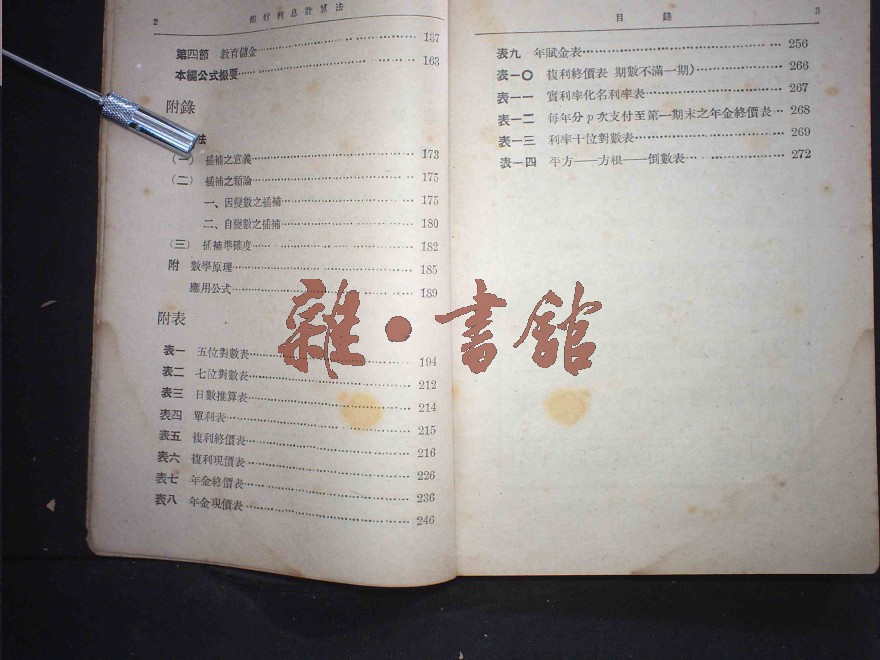 2
銀行利息計算法
第四節 教育儲金 137
本編公式撮要 163
附錄
法
(一) 插補之意義 173
(二) 插補之類論 175
一、因變數之插補 175
二、自變數之插補 180
(三) 插補準確度 182
附 數學原理 185
應用公式 189
附表
表一 五位對數表 194
表二 七位對數表 212
表三 日數推算表 214
表四 單利表 215
表五 複利終價表 216
表六 複利現價表 226
表七 年金終價表 236
表八 年金現價表 246
目錄
3
表九 年賦金表 256
表一〇 複利終價表 期數不滿一期) 266
表一一 實利率化名利率表 267
表一二 每年分p次支付至第一期末之年金終價表 268
表一三 利率十位對數表 269
表一四 平方——方根——倒數表 272
雜·書館